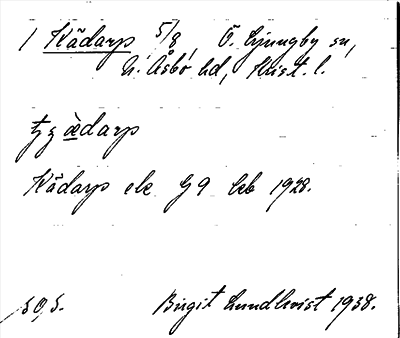 1 Kädarp 5/8, Ö. Ljungby sn,
N. Åsbo hd, Krist. l.
àdarp
Kädarp ek G 9 Ceb 1928.
Birgit Lundkvist 1938.